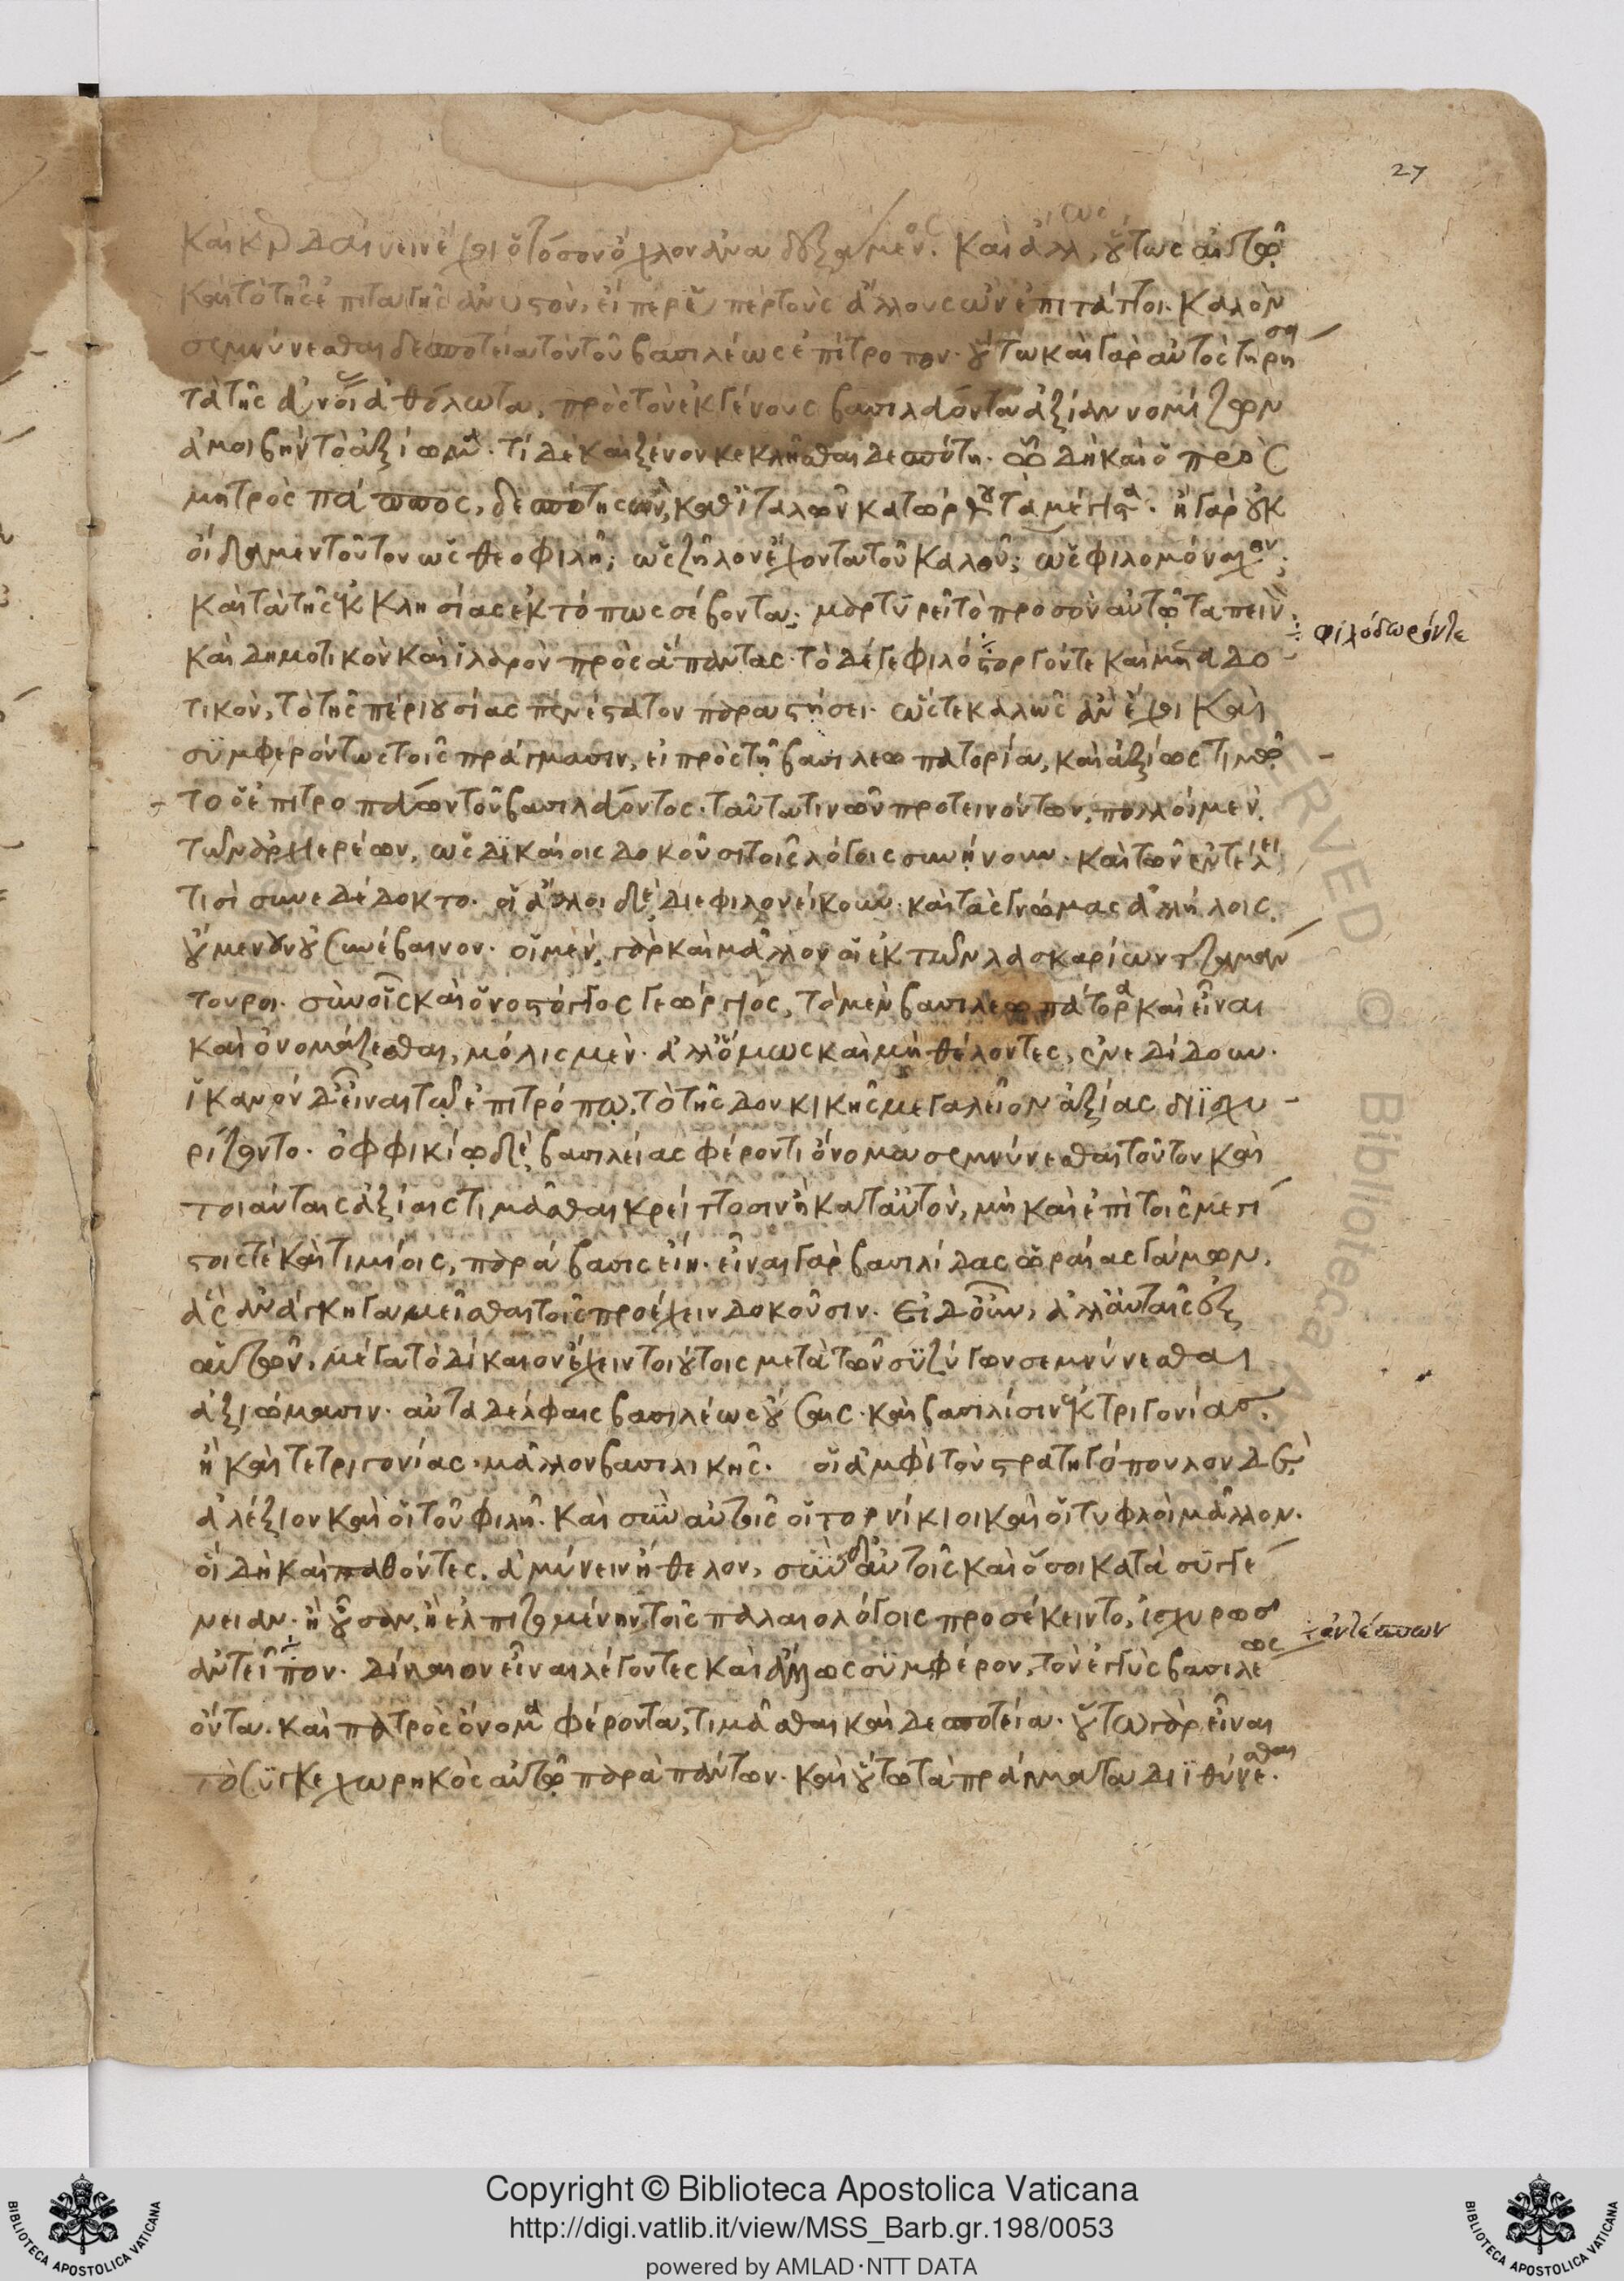 27
καὶ τὸ τῆς ἐπιταγῆς ἀνυστὸν, εἴπερ ὑπὲρ τοὺς ἄλλους ὢν ἐπιτάττοι. καλὸν
σεμνύνεσθαι δεσποτεία τὸν τοῦ βασιλέως ἐπίτροπον. οὕτω καὶ γὰρ αὐτὸς τηρῆσαι
τὰ τῆς εὐνοίας θόλωτα, πρὸς τὸν ἐκ γένους βασιλεύοντα ἀξίαν νομίζων
ἀμοιβὴν τὸ ἀξίωμα. τί δὲ καὶ ξένον κεκλῆσθαι δεσπότην. ᾧ δὴ καὶ ὁ πρὸς
μητρὸς πάππος, δεσπότης ὢν, κατ' ἰταλῶν κατώρθου τὰ μέγιστα. ἢ γὰρ οὐκ
οἴδαμεν τοῦτον ὡς θεοφιλῆ; ὡς ζῆλον ἔχοντα τοῦ καλοῦ; ὡς φιλομόναχον;
καὶ τὰ τῆς ἐκκλησίας ἐκτόπως σέβοντα; μαρτυρεῖ τὸ προσὸν αὐτῷ ταπεινὸν
καὶ δημοτικὸν καὶ ἱλαρὸν πρὸς ἅπαντας. τὸ δέ γε φιλόστοργόν τε καὶ μεταδο
φιλόδωρόν τε
τικὸν, τὸ τῆς περιουσίας πενέστατον παραστήσει. ὥστε καλῶς ἂν ἔχοι καὶ
συμφερόντως τοῖς πράγμασιν, εἰ πρὸς τῇ βασιλεωπατορία, καὶ ἀξίως τιμῷ
το ὁ ἐπιτροπεύων τοῦ βασιλεύοντος. ταῦτά τινων προτεινόντων, πολλοὶ μὲν
τῶν ἀρχιερέων, ὡς δικαίοις δοκοῦσι τοῖς λόγοις συνῄνουν. καὶ τῶν ἐν τέλει
τισὶ συνεδέδοκτο. οἱ ἄλλοι δὲ διεφιλονείκουν. καὶ τὰς γνώμας ἀλλήλοις
οὔμενουν οὐ συνέβαινον. οἱ μὲν γὰρ καὶ μᾶλλον οἱ ἐκ τῶν λασκαρίων τζαμαν
τουροι. σὺν οἷς καὶ ὁ νοστόγγος γεώργιος, τὸ μὲν βασιλεωπάτορα καὶ εἶναι
καὶ ὀνομάζεσθαι, μόλις μὲν. ἀλλ' ὅμως καὶ μὴ θέλοντες, ἐνεδίδουν.
ἱκανὸν δ' εἶναι τῷ ἐπιτρόπῳ, τὸ τῆς δουκικῆς μεγαλεῖον ἀξίας διϊσχυ
ρίζοντο. ὀφφικίῳ δὲ βασιλείας φέροντι ὄνομα σεμνύνεσθαι τοῦτον καὶ
τοιαύταις ἀξίαις τιμᾶσθαι κρείττοσιν ἢ κατ' αὐτὸν, μὴ καὶ ἐπὶ τοῖς μεγί
στοις τὲ καὶ τιμίοις, παράβασις εἴη. εἶναι γὰρ βασιλίδας ὡραίας γάμων.
ἃς ἀνάγκη ταμιεῖσθαι τοῖς προέχειν δοκοῦσιν. εἰ δ' οὖν, ἀλλ' αὐταῖς ἐξ
αὐτῶν, μέγα τὸ δίκαιον ἔχειν τοιούτοις μετὰ τῶν συζύγων σεμνύνεσθαι
ἀξιώμασιν. αὐταδέλφαις βασιλέως οὔσαις. καὶ βασιλίσιν ἐκ τριγονίας,
ἢ καὶ τετριγονίας μᾶλλον βασιλικῆς. οἱ ἀμφὶ τὸν στρατηγόπουλον δὲ
ἀλέξιον καὶ οἱ τοῦ φιλῆ. καὶ σὺν αὐτοῖς οἱ τορνίκιοι καὶ οἱ τυφλοὶ μᾶλλον.
οἳ δὴ καὶ παθόντες, ἀμύνειν ἤθελον, σὺν δ' αὐτοῖς καὶ ὅσοι κατὰ συγγέ
νειαν. ἢ οὖσαν, ἢ ἐλπιζομένην, τοῖς παλαιολόγοις προσέκειντο, ἰσχυρῶς
ἀντεῖπον. δίκαιον εἶναι λέγοντες καὶ ἄλλως συμφέρον, τὸν ἐγγὺς βασιλέως
ἀντέπιπτον
ὄντα. καὶ πατρὸς ὄνομα φέροντα, τιμᾶσθαι καὶ δεσποτεία. οὕτω γὰρ εἶναι
τὸ συγκεχωρηκὸς αὐτῷ παρὰ πάντων. καὶ οὕτω τὰ πράγματα διϊθύνεσθαι.
Copyright © Biblioteca Apostolica Vaticana
http://digi.vatlib.it/view/MSS_Barb.gr.198/0053
powered by AMLAD·NTT DATA
BIBLIOTECA APOSTOLICA VATICANA
BIBLIOTECA APOSTOLICA VATICANA